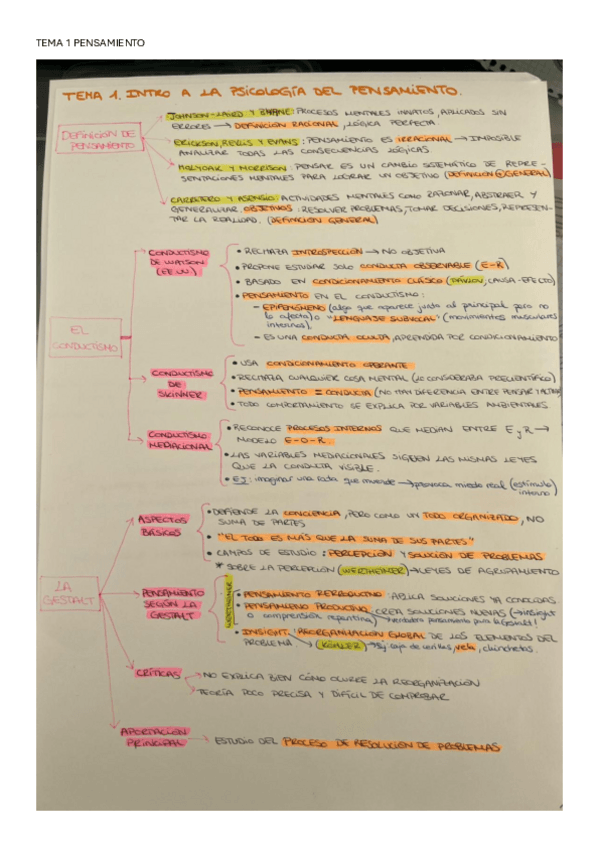 TEMA 1 PENSAMIENTO
TEMA 1. INTRO A LA PSICOLOGÍA DEL PENSAMIENTO.
DEFINICIÓN DE PENSAMIENTO
JOHNSON-LAIRD Y BYRNE: PROCESOS MENTALES INNATOS, APLICADOS SIN
ERRORES → DEFINICIÓN RACIONAL, LÓGICA PERFECTA
ERICKSON, REVLIS Y EVANS: PENSAMIENTO ES IRRACIONAL → IMPOSIBLE
ANALIZAR TODAS LAS CONSECUENCIAS LÓGICAS.
HOLYOAK Y MORRISON: PENSAR ES UN CAMBIO SISTEMÁTICO DE REPRE-
SENTACIONES MENTALES PARA LOGRAR UN OBJETIVO (DEFINICIÓN + GENERAL)
CARRETERO Y ASENSIO: ACTIVIDADES MENTALES COMO RAZONAR, ABSTRAER Y
GENERALIZAR. OBJETIVOS: RESOLVER PROBLEMAS, TOMAR DECISIONES, REPRESEN-
TAR LA REALIDAD. (DEFINICIÓN GENERAL)
EL CONDUCTISMO
CONDUCTISMO
DE WATSON
(EE.UU.)
• RECHAZA INTROSPECCIÓN → NO OBJETIVA
• PROPONE ESTUDIAR SOLO CONDUCTA OBSERVABLE (E-R)
• BASADO EN CONDICIONAMIENTO CLÁSICO (PÁVLOV, CAUSA-EFECTO)
• PENSAMIENTO EN EL CONDUCTISMO:
– EPIFENÓMENO (algo que aparece junto al principal pero no
lo afecta) o "LENGUAJE SUBVOCAL" (movimientos musculares
internos).
– ES UNA CONDUCTA OCULTA APRENDIDA POR CONDICIONAMIENTO
CONDUCTISMO
DE
SKINNER
• USA CONDICIONAMIENTO OPERANTE
• RECHAZA CUALQUIER COSA MENTAL (LO CONSIDERABA PRECIENTÍFICO)
• PENSAMIENTO = CONDUCTA (NO HAY DIFERENCIA ENTRE PENSAR Y ACTUAR)
• TODO COMPORTAMIENTO SE EXPLICA POR VARIABLES AMBIENTALES
CONDUCTISMO
MEDIACIONAL
• RECONOCE PROCESOS INTERNOS QUE MEDIAN ENTRE E y R →
MODELO E-O-R.
• LAS VARIABLES MEDIACIONALES SIGUEN LAS MISMAS LEYES
QUE LA CONDUCTA VISIBLE.
• EJ: imaginar una rata que muerde → provoca miedo real (estímulo
interno)
LA GESTALT
ASPECTOS
BÁSICOS
• DEFIENDE LA CONCIENCIA, PERO COMO UN TODO ORGANIZADO, NO
SUMA DE PARTES
• "EL TODO ES MÁS QUE LA SUMA DE SUS PARTES"
• CAMPOS DE ESTUDIO: PERCEPCIÓN Y SOLUCIÓN DE PROBLEMAS
* SOBRE LA PERCEPCIÓN (WERTHEIMER) → LEYES DE AGRUPAMIENTO
PENSAMIENTO
SEGÚN LA
GESTALT
WERTHEIMER
• PENSAMIENTO REPRODUCTIVO: APLICA SOLUCIONES YA CONOCIDAS
• PENSAMIENTO PRODUCTIVO: CREA SOLUCIONES NUEVAS (→ insight
o comprensión repentina) → verdadero pensamiento para la Gestalt!
• INSIGHT: REORGANIZACIÓN GLOBAL DE LOS ELEMENTOS DEL
PROBLEMA → (KÖHLER) → Ej. caja de cerillas, vela, chinchetas.
CRÍTICAS
NO EXPLICA BIEN CÓMO OCURRE LA REORGANIZACIÓN
TEORÍA POCO PRECISA Y DIFÍCIL DE COMPROBAR
APORTACIÓN
PRINCIPAL
→ ESTUDIO DEL PROCESO DE RESOLUCIÓN DE PROBLEMAS